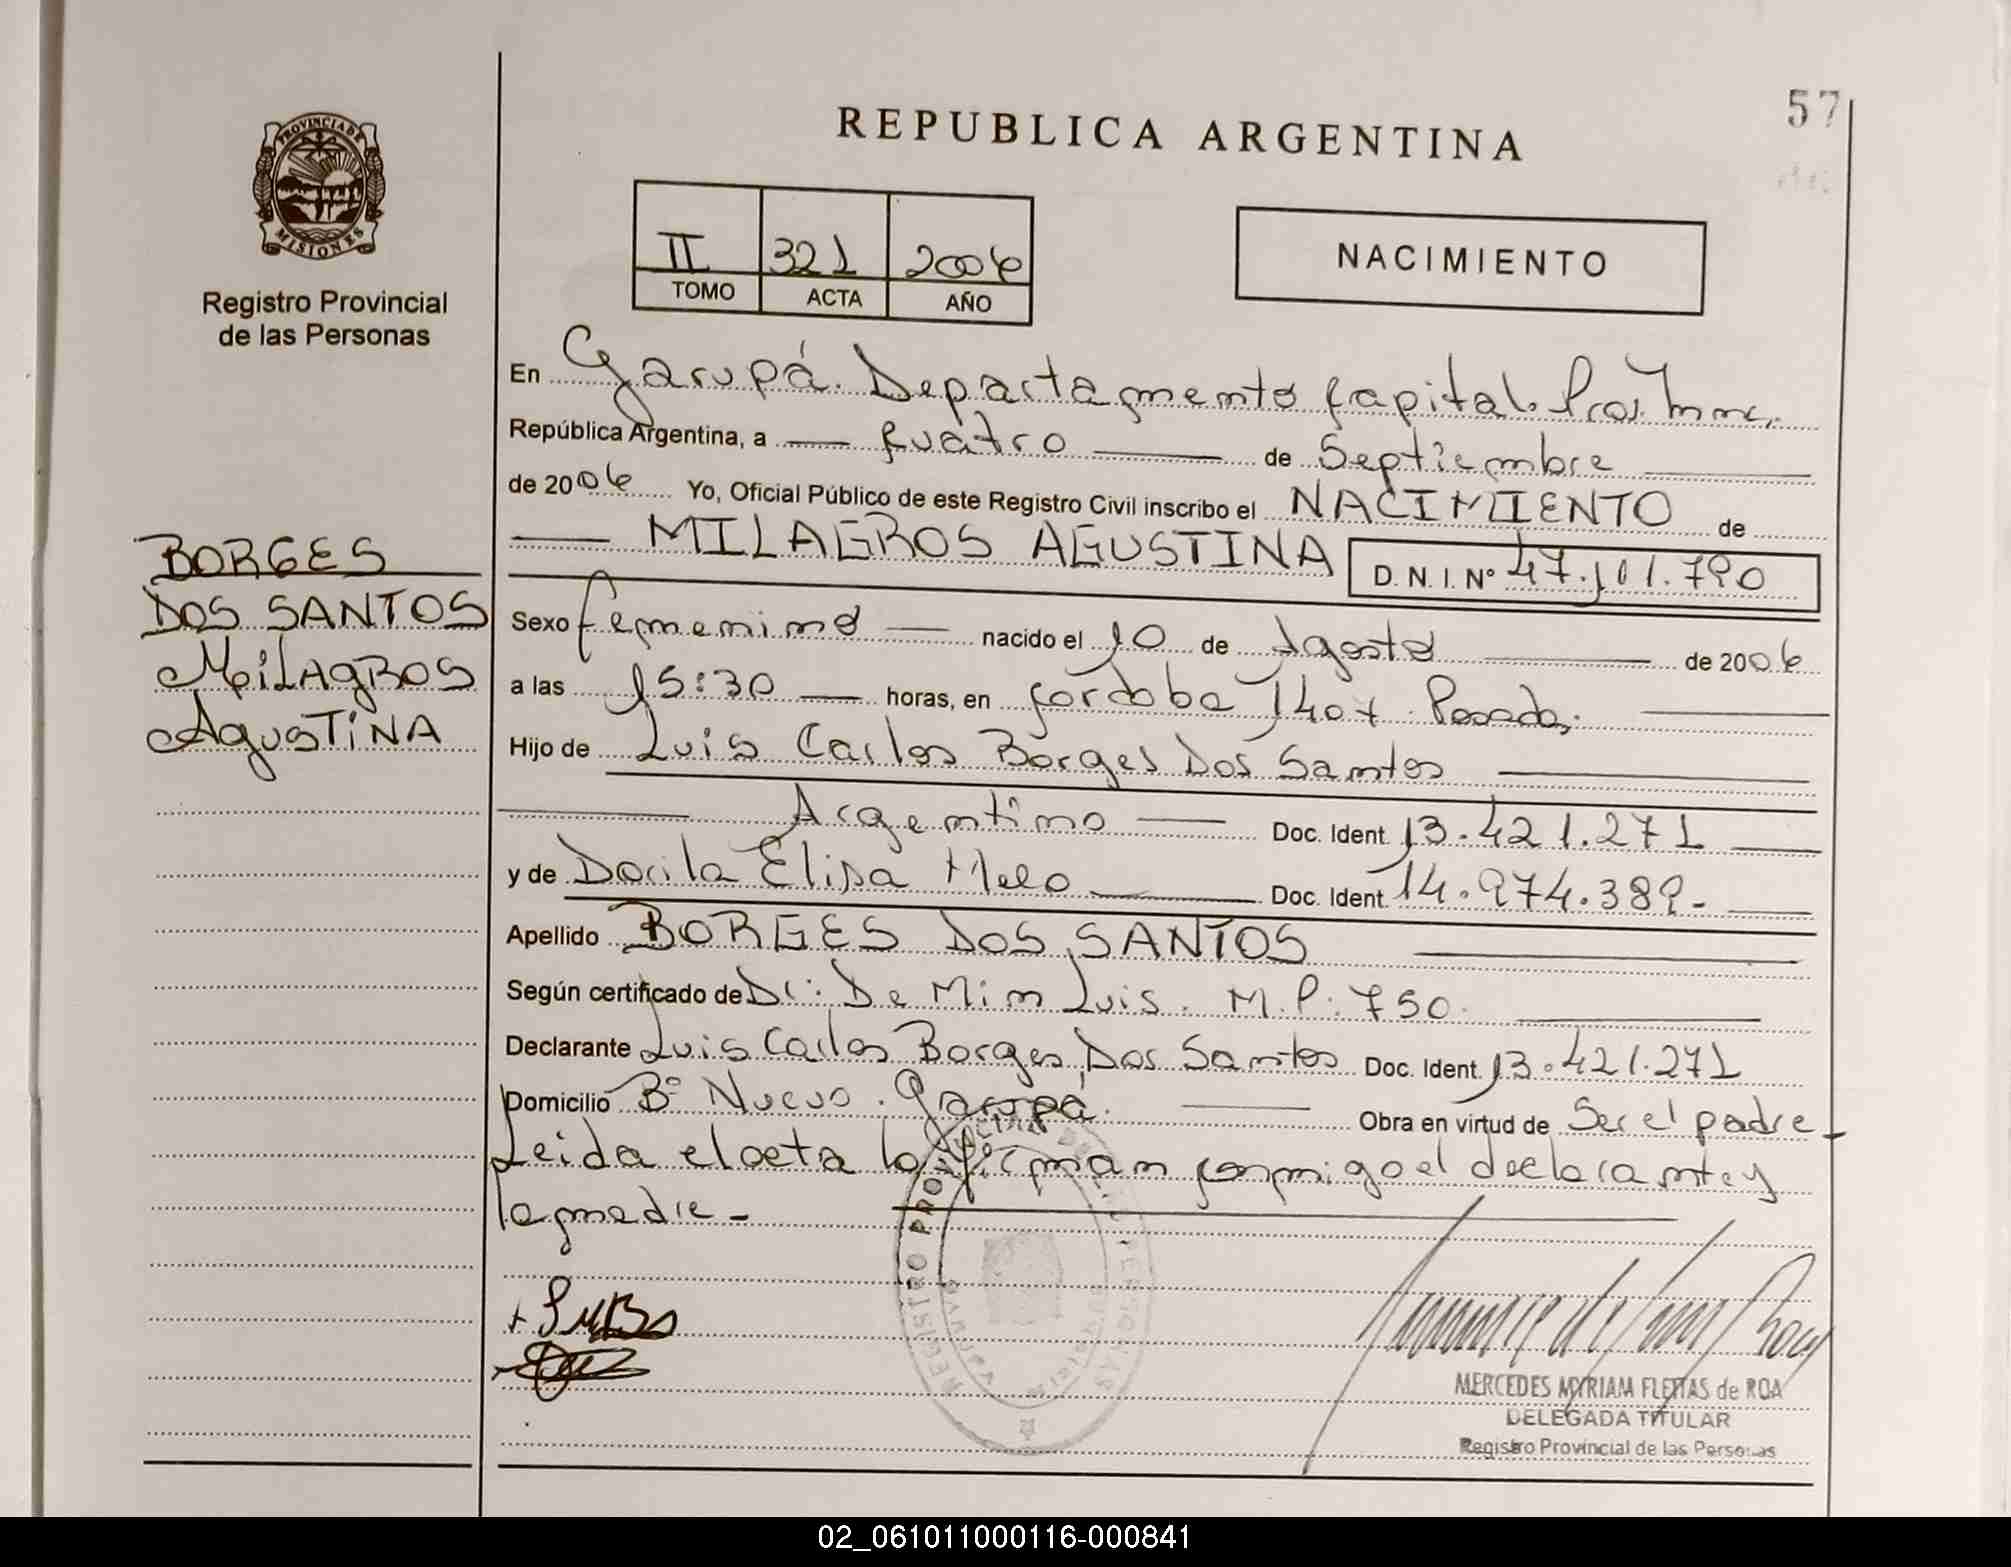 57
REPUBLICA ARGENTINA
PROVINCIA DE
MISIONES
Registro Provincial
de las Personas
II 321 2006
TOMO ACTA AÑO
NACIMIENTO
En Garupá. Departamento Capital. Prov.
República Argentina, a cuatro de Septiembre
de 2006 Yo, Oficial Público de este Registro Civil inscribo el NACIMIENTO de
MILAGROS AGUSTINA D.N.I. Nº 47.101.790
BORGES
DOS SANTOS
MILAGROS
AGUSTINA
Sexo femenino nacido el 10 de Agosto de 2006
a las 15:30 horas, en Córdoba 1407 Posadas
Hijo de Luis Carlos Borges Dos Santos
Argentino Doc. Ident. 13.421.271
y de Dorila Elisa Melo Doc. Ident. 14.974.389.-
Apellido BORGES DOS SANTOS
Según certificado de Dr: De Mim Luis. M.P: 750.
Declarante Luis Carlos Borges Dos Santos Doc. Ident. 13.421.271
Domicilio Bº Nuevo. Garupá. Obra en virtud de Ser el padre
Leida el acta la firman conmigo el declarante y
la madre -
REGISTRO PROV DE LAS PERSONAS
GARUPA
MERCEDES MYRIAM FLEITAS de ROA
DELEGADA TITULAR
Registro Provincial de las Personas
02_061011000116-000841